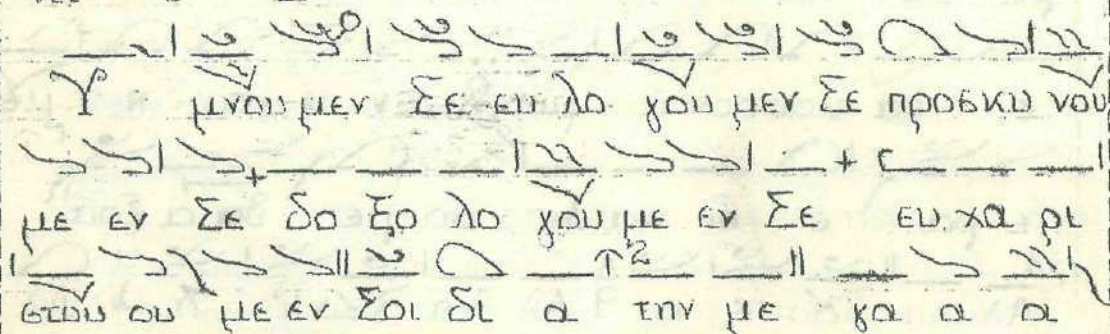 Υ μνου μεν Σε ευ λο γου μεν Σε προσκυ νου
με εν Σε δο ξο λο γου με εν Σε ευ χα ρι
στου ου με εν Σοι δι α την με γα α α